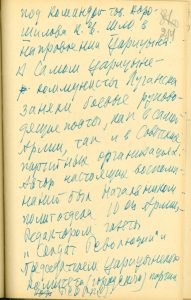 под командой тов. Воро-
шилова К. Е. шли в
направлении Царицына.
В самом Царицыне-
коммунисты Луганска
заняли боевые руково-
дящие посты, как в самой
Армии, так и в советских
партийных организациях.
Автор настоящих воспоми-
наний был начальником
политотдела 10 ой Армии,
редактором газеты
"Солдат Революции" и
Председателем Царицынского
комитета (городского) партии